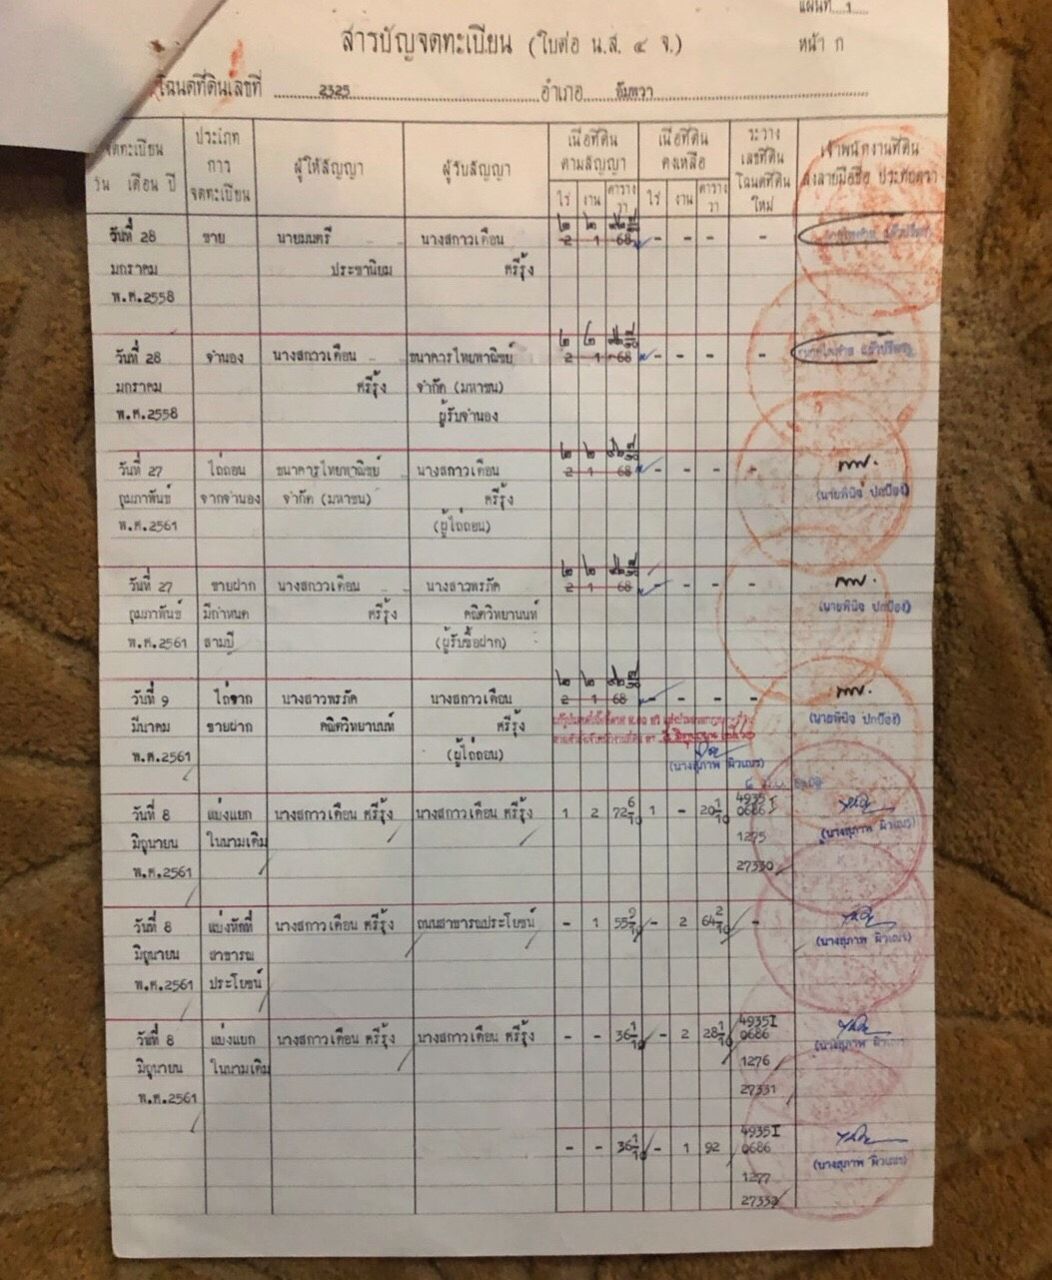 แผ่นที่ 1
สารบัญจดทะเบียน (ใบต่อ น.ส. ๔ จ.) หน้า ก
โฉนดที่ดินเลขที่ 2325 อำเภอ อัมพวา
จดทะเบียน วัน เดือน ปี
ประเภท การ จดทะเบียน
ผู้ให้สัญญา
ผู้รับสัญญา
เนื้อที่ดิน ตามสัญญา
ไร่ งาน ตารางวา
เนื้อที่ดิน คงเหลือ
ไร่ งาน ตารางวา
ระวาง เลขที่ดิน โฉนดที่ดิน ใหม่
เจ้าพนักงานที่ดิน ลงลายมือชื่อ ประทับตรา
๒ ๒
วันที่ 28 ขาย นายมนตรี นางสกาวเดือน 2 1 68 - - - -
มกราคม ประชานิยม ศรีรุ้ง
พ.ศ.2558
๒ ๒
วันที่ 28 จำนอง นางสกาวเดือน ธนาคารไทยพาณิชย์ 2 1 68 - - - -
มกราคม ศรีรุ้ง จำกัด (มหาชน)
พ.ศ.2558 ผู้รับจำนอง
๒ ๒
วันที่ 27 ไถ่ถอน ธนาคารไทยพาณิชย์ นางสกาวเดือน 2 1 68 - - - -
กุมภาพันธ์ จากจำนอง จำกัด (มหาชน) ศรีรุ้ง (นายพินิจ ปกป้อง)
พ.ศ.2561 (ผู้ไถ่ถอน)
๒ ๒
วันที่ 27 ขายฝาก นางสกาวเดือน นางสาวพรภัค 2 1 68 - - - -
กุมภาพันธ์ มีกำหนด ศรีรุ้ง คณิตวิทยานนท์ (นายพินิจ ปกป้อง)
พ.ศ.2561 สามปี (ผู้รับซื้อฝาก)
๒ ๒
วันที่ 9 ไถ่จาก นางสาวพรภัค นางสกาวเดือน 2 1 68 - - - -
มีนาคม ขายฝาก คณิตวิทยานนท์ ศรีรุ้ง (นายพินิจ ปกป้อง)
พ.ศ.2561 (ผู้ไถ่ถอน) (นางสุภาพ ผิวเณร)
วันที่ 8 แบ่งแยก นางสกาวเดือน ศรีรุ้ง นางสกาวเดือน ศรีรุ้ง 1 2 72 6/10 1 - 20 1/10 4935 I 0686
มิถุนายน ในนามเดิม 1275 (นางสุภาพ ผิวเณร)
พ.ศ.2561 27330
วันที่ 8 แบ่งหักที่ นางสกาวเดือน ศรีรุ้ง ถนนสาธารณประโยชน์ - 1 55 9/10 - 2 64 2/10 -
มิถุนายน สาธารณ (นางสุภาพ ผิวเณร)
พ.ศ.2561 ประโยชน์
วันที่ 8 แบ่งแยก นางสกาวเดือน ศรีรุ้ง นางสกาวเดือน ศรีรุ้ง - - 36 1/10 - 2 28 1/10 4935 I 0686
มิถุนายน ในนามเดิม 1276 (นางสุภาพ ผิวเณร)
พ.ศ.2561 27331
- - 36 1/10 - 1 92 4935 I 0686
1277 (นางสุภาพ ผิวเณร)
27332